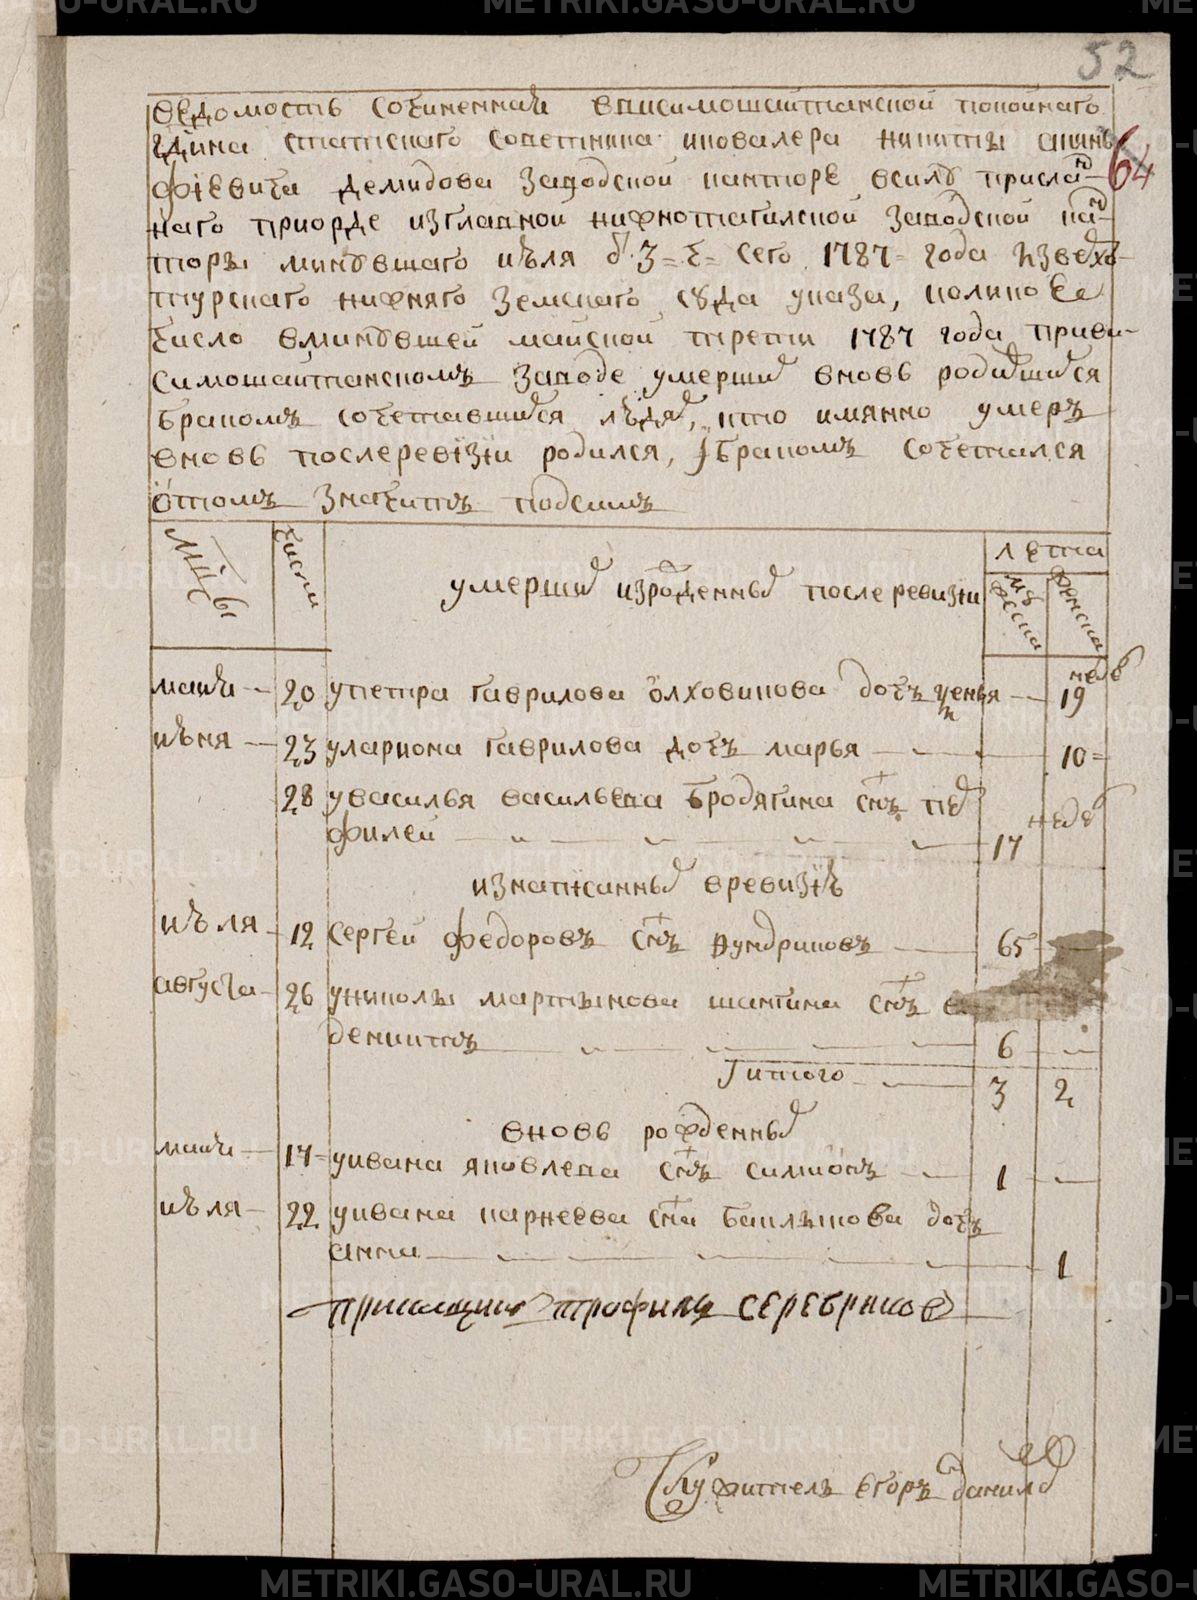 52
64
ведомость сочиненная ввисимошайтанской покойнаго
гдина статскаго советника икавалера никиты акинь
фіевича демидова заводской канторе всилу прислан
наго приорде изглавной нижнотагилской заводской кан
торы минувшаго июля б. 3 = г = сего 1787 = года изверхо
турскаго нижняго земскаго суда указа, коликое
число вминувшей майской трети 1787 года приви
симошайтанскомъ заводе умерших вновь родившихся
бракомъ сочетавшихся людях, кто имянно умеръ
вновь послеревізіи родился, ибракомъ сочетался
отомъ значитъ подсимъ
мцы
числа
умерших изрожденных после ревизіи
лета
мужеска
женска
майя 20 упетра гаврилова олховикова дочь ксенья 19 недел
июня 23 улариона гаврилова дочь марья 10 =
28 увасилья васильева бродягина снъ пер
филей 17 недел
изнаписанных вревизіи
июля 12 сергей федоровъ снъ кундриковъ 65
августа 26 униколы мартынова шангина снъ
дениитъ 6
итого 3 2
вновь рожденных
майя 17 = уивана яковлева снъ симионъ 1
июля 22 уивана карнеева сна баклыкова дочь
анна 1
прикащикъ трофимъ серебряков
Служитель егоръ данилов